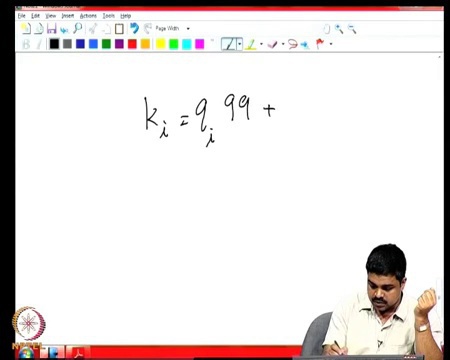 File Edit View Insert Actions Tools Help
Page Width
B
k_i = q_i 99 +